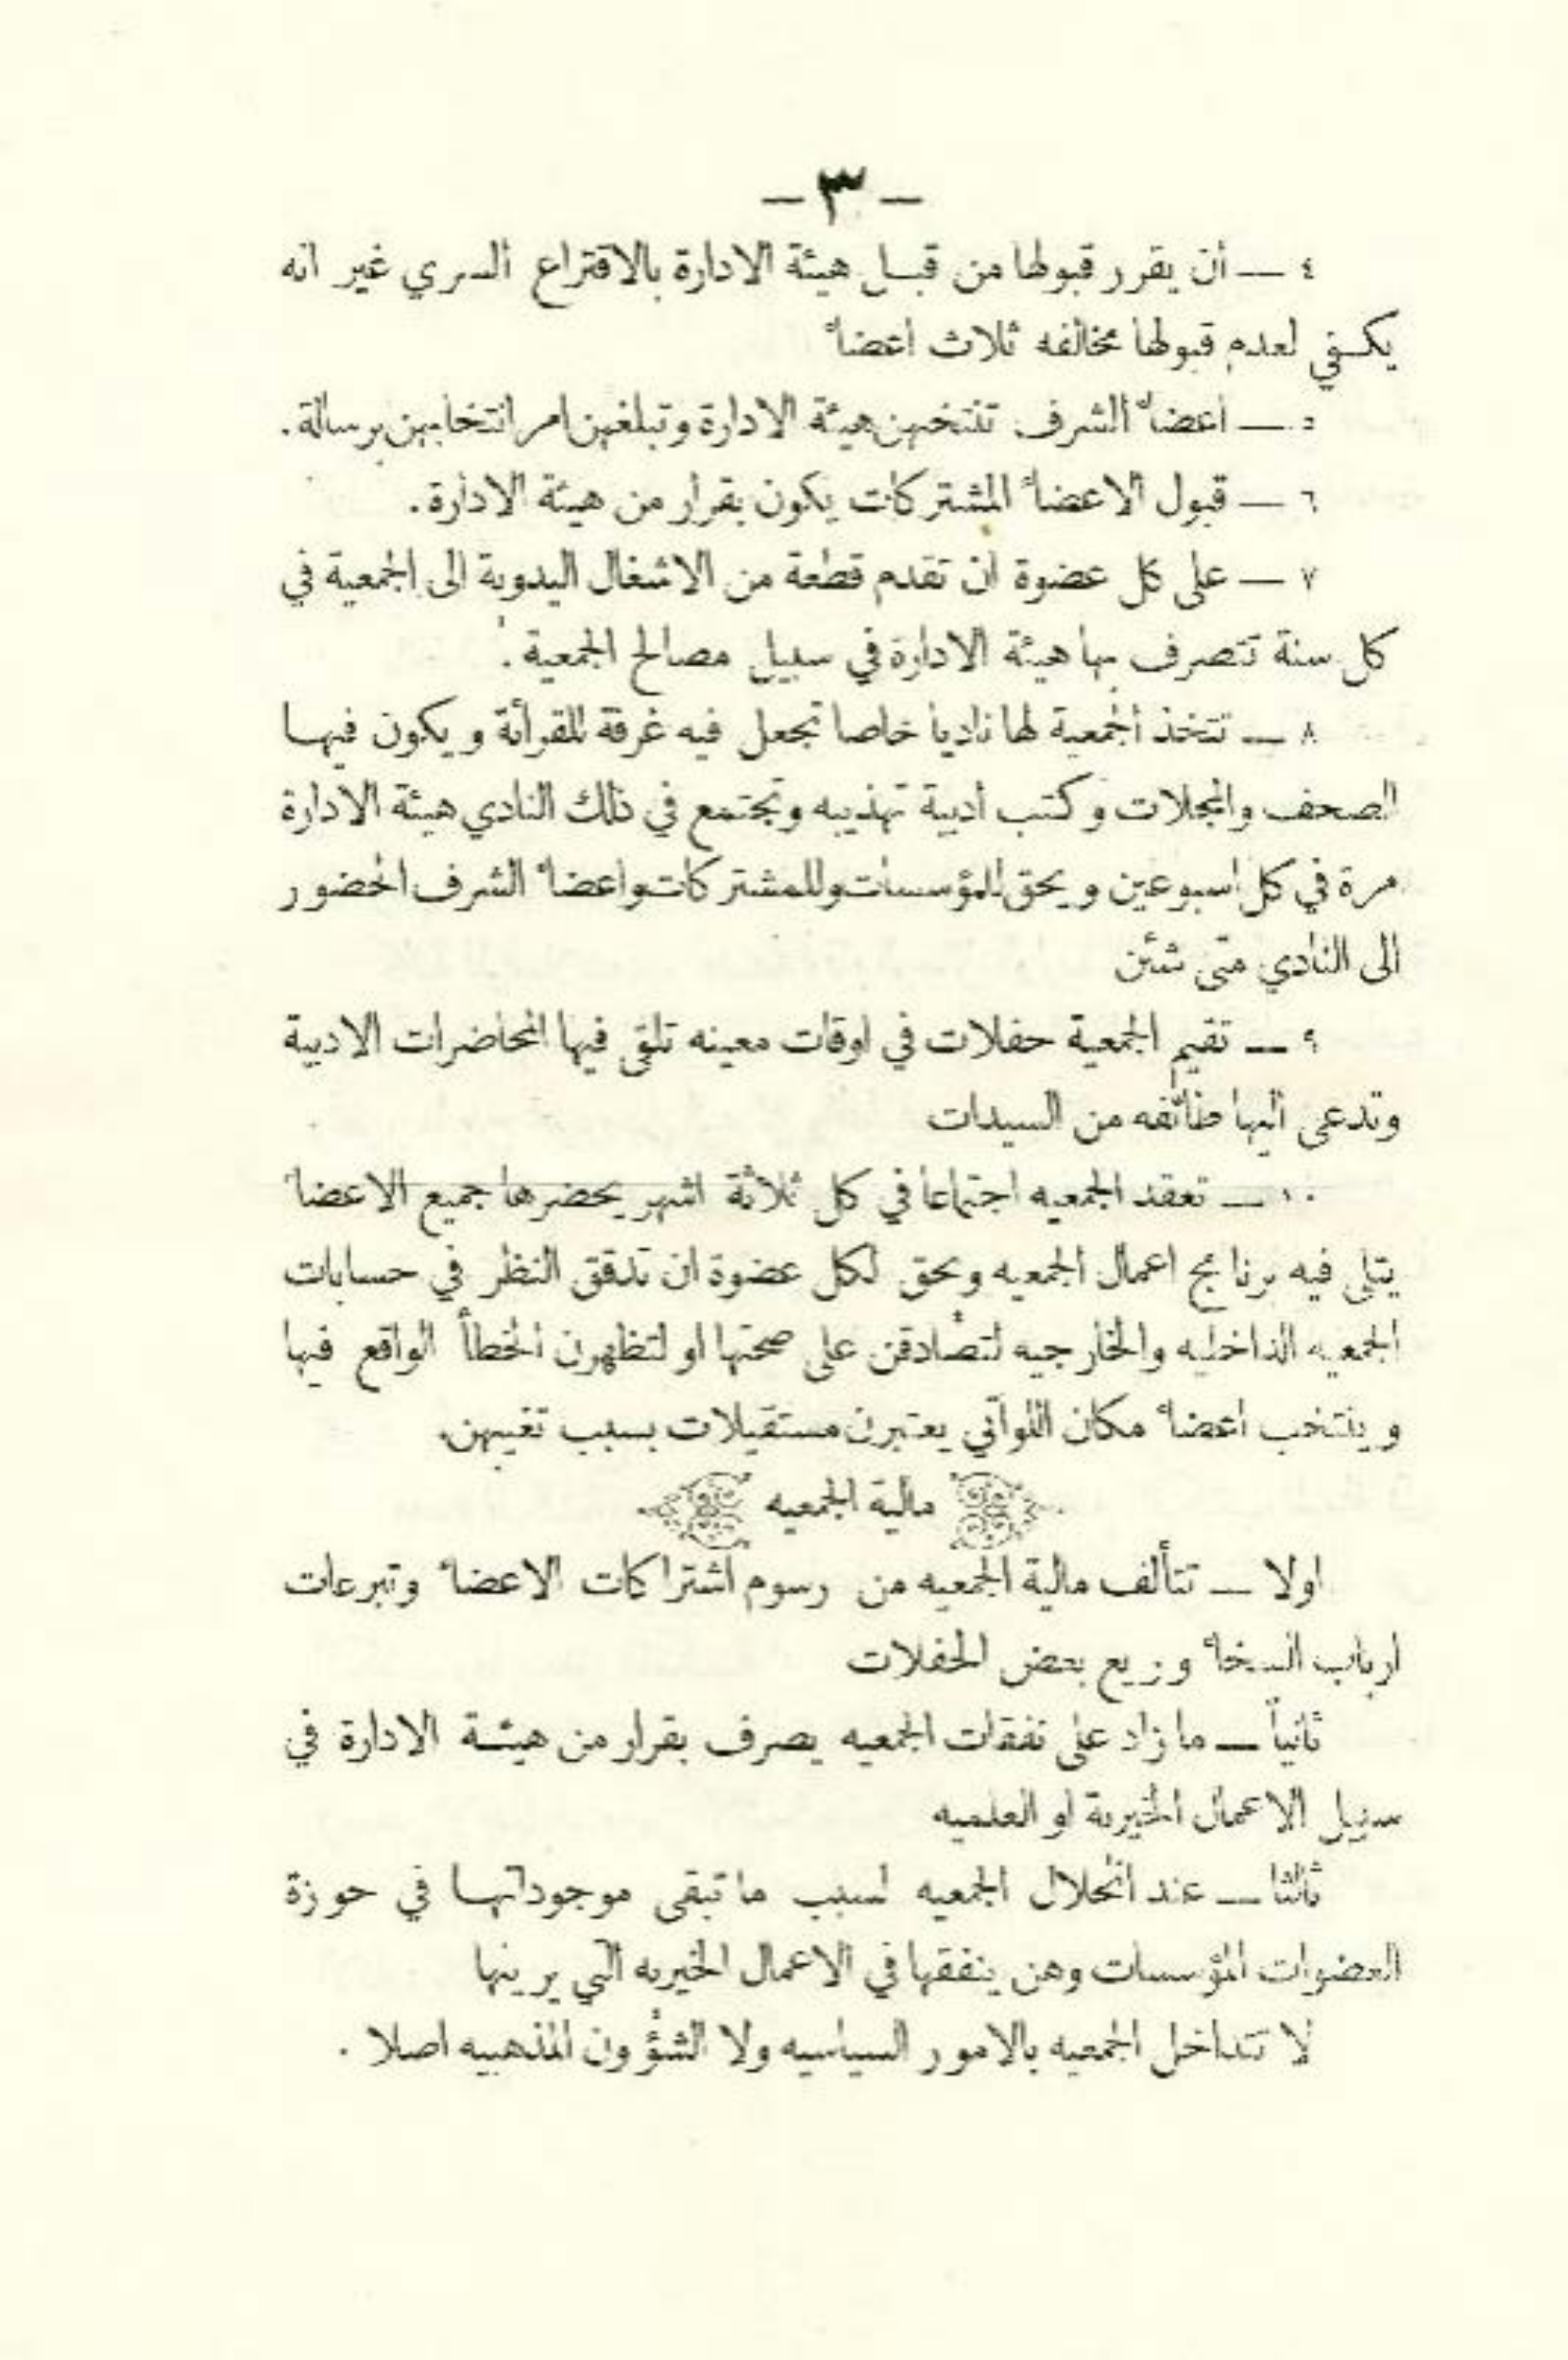 — ٣ —
٤ — أن يقرر قبولها من قبـل هيئة الادارة بالاقتراع السري غير انه
يكـفي لعدم قبولها مخالفه ثلاث اعضاء
٥ — اعضاء الشرف تنتخبهن هيئة الادارة وتبلغهن امر انتخابهن برسالة.
٦ — قبول الاعضاء المشتركات يكون بقرار من هيئة الادارة.
٧ — على كل عضوة ان تقدم قطعة من الاشغال اليدوية الى الجمعية في
كل سنة تتصرف بها هيئة الادارة في سبيل مصالح الجمعية.
٨ — تتخذ الجمعية لها ناديا خاصا تجعل فيه غرفة للقرائة ويكون فيهـا
الصحف والمجلات وكتب أدبية تهذيبه وتجتمع في ذلك النادي هيئة الادارة
مرة في كل اسبوعين ويحق للمؤسسات وللمشتركات واعضاء الشرف الحضور
الى النادي متى شئن
٩ — تقيم الجمعية حفلات في اوقات معينه تلقى فيها المحاضرات الادبية
وتدعى اليها طائفه من السيدات
١٠ — تعقد الجمعيه اجتماعا في كل ثلاثة اشهر يحضرها جميع الاعضاء
يتلى فيه برنامج اعمال الجمعيه ويحق لكل عضوة ان تدقق النظر في حسابات
الجمعيه الداخليه والخارجيه لتصادقن على صحتها او لتظهرن الخطأ الواقع فيها
وينتخب اعضاء مكان اللواتي يعتبرن مستقيلات بسبب تغيبهن.
مالية الجمعيه
اولا — تتألف مالية الجمعيه من رسوم اشتراكات الاعضاء وتبرعات
ارباب السخاء وريع بعض الحفلات
ثانياً — ما زاد على نفقات الجمعيه يصرف بقرار من هيئـة الادارة في
سبيل الاعمال الخيرية او العلميه
ثالثا — عند انحلال الجمعيه لسبب ما تبقى موجوداتهـا في حوزة
العضوات المؤسسات وهن ينفقنها في الاعمال الخيريه التي يرينها
لا تتداخل الجمعيه بالامور السياسيه ولا الشؤون المذهبيه اصلا .